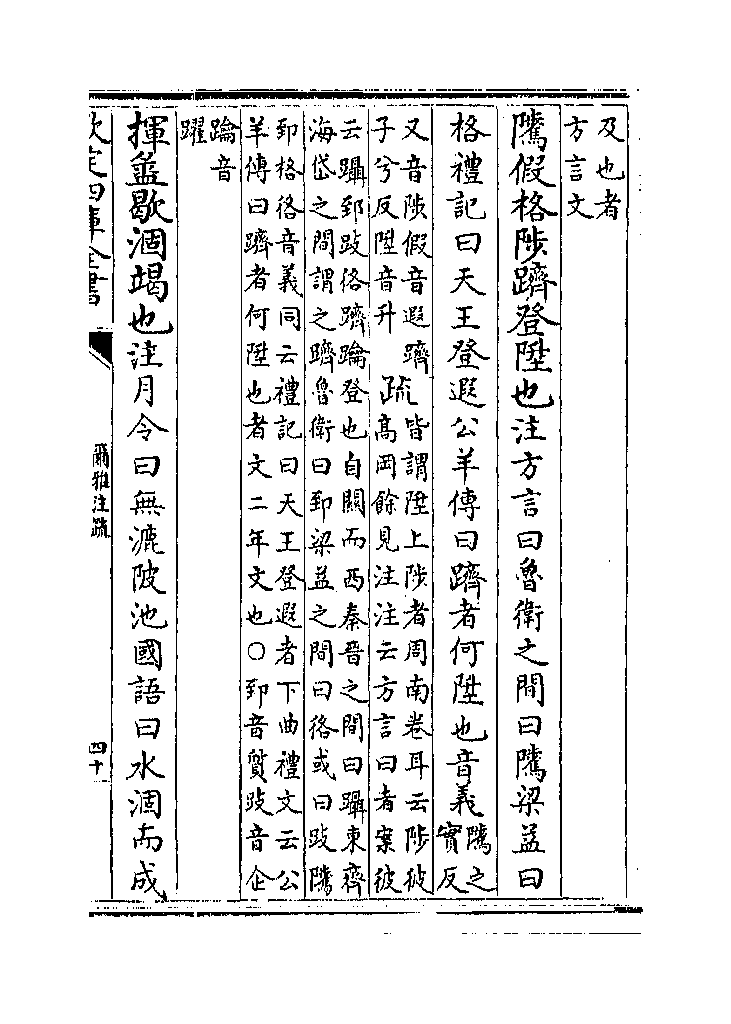 及也者
方言文
隲假格陟躋登陞也注方言曰魯衛之間曰隲梁益曰
格禮記曰天王登遐公羊傳曰躋者何陞也音義隲之
實反
又音陟假音遐躋
子兮反陞音升
疏皆謂陞上陟者周南卷耳云陟彼
高岡餘見注注云方言曰者案彼
云躡郅跂佫躋踚登也自關而西秦晉之間曰躡東齊
海岱之間謂之躋魯衛曰郅梁益之間曰佫或曰跂隲
郅格佫音義同云禮記曰天王登遐者下曲禮文云公
羊傳曰躋者何陞也者文二年文也〇郅音質跂音企
踚音
躍
揮盝歇涸竭也注月令曰無漉陂池國語曰水涸而成
欽定四庫全書
爾雅注疏
四十